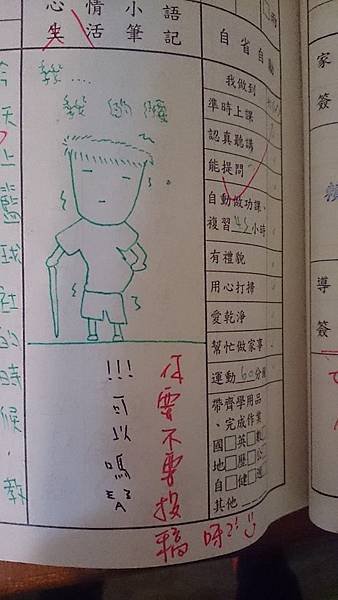 心情小語
生活筆記
自省自勵
我...
我的腰
!!!可以嗎
你要不要投稿呀?!
今天上籃球社的時候,教
我做到
準時上課
認真聽講
能提問
自動做功課、
複習 小時
有禮貌
用心打掃
愛乾淨
幫忙做家事
運動60分
帶齊學用品
、完成作業
國□英□數
地□歷□公
自□健□
其他
家簽
導簽